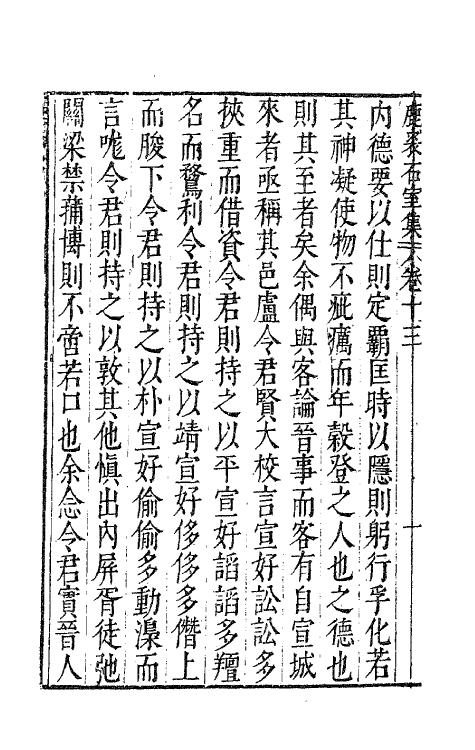 鹿裘石室集 卷十三 一
內德要以仕則定覇匡時以隱則躬行孚化若
其神凝使物不疵癘而年穀登之人也之德也
則其至者矣余偶與客論晉事而客有自宣城
來者亟稱其邑盧令君賢大校言宣好訟訟多
挾重而借資令君則持之以平宣好謟謟多羶
名而騖利令君則持之以靖宣好侈侈多僭上
而朘下令君則持之以朴宣好偷偷多動澡而
言哤令君則持之以敦其他愼出內屏胥徒弛
關梁禁蒱博則不啻若口也余念令君實晉人